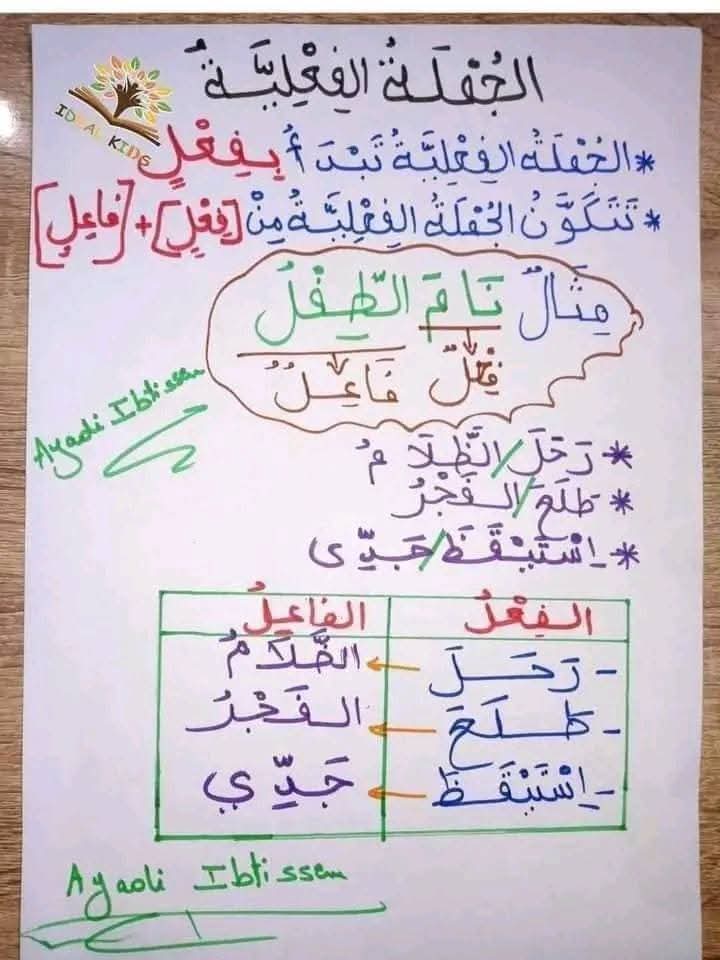 الجُمْلَةُ الفِعْلِيَّةُ
IDEAL KIDS
* الجُمْلَةُ الفِعْلِيَّةُ تَبْدَأُ بِفِعْلٍ
* تَتَكَوَّنُ الجُمْلَةُ الفِعْلِيَّةُ مِنْ [فِعْلٍ] + [فَاعِلٍ]
مِثَالٌ نَامَ الطِّفْلُ
فِعْلٌ فَاعِلٌ
Ayadi Ibtissem
* رَحَلَ/الظَّلَامُ
* طَلَعَ/الفَجْرُ
* اِسْتَيْقَظَ/جَدِّي
الفِعْلُ الفَاعِلُ
- رَحَلَ ← الظَّلَامُ
- طَلَعَ ← الفَجْرُ
- اِسْتَيْقَظَ ← جَدِّي
Ayadi Ibtissem